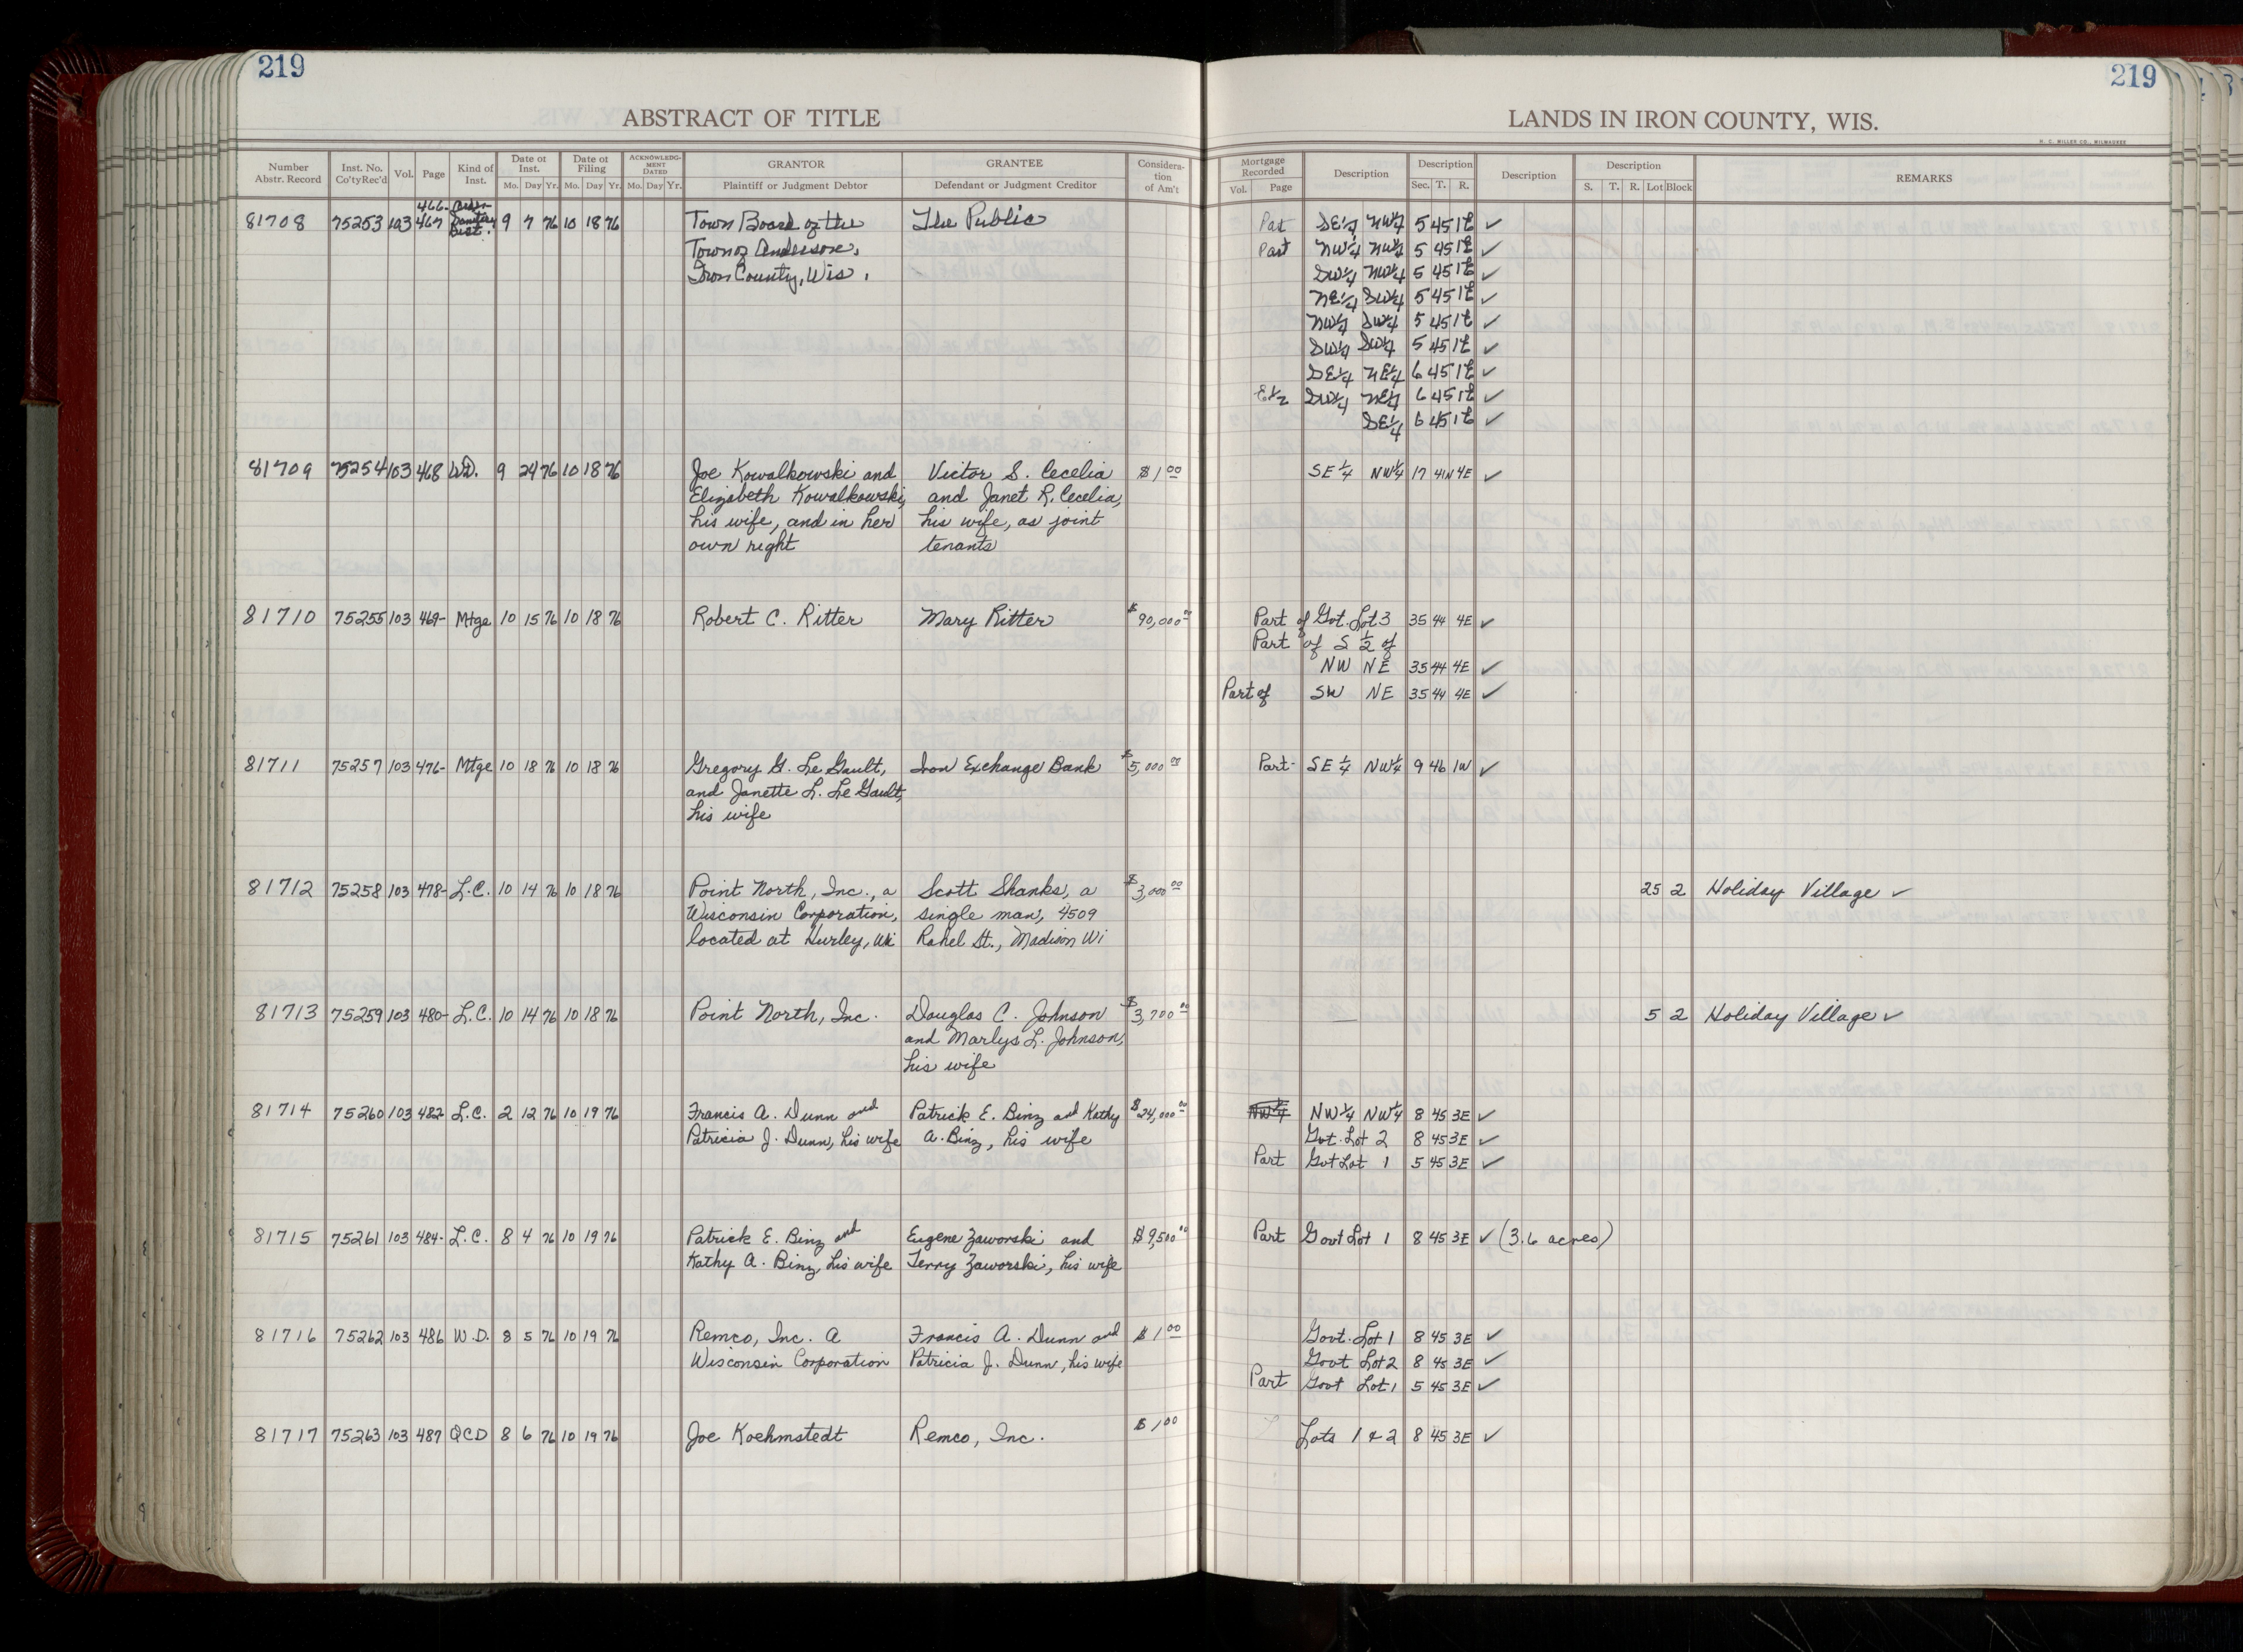 219
219
ABSTRACT OF TITLE
LANDS IN IRON COUNTY, WIS.
H. C. MILLER CO., MILWAUKEE
Number Abstr. Record Inst. No. Co'ty Rec'd Vol. Page Kind of Inst. Date of Inst. Mo. Day Yr. Date of Filing Mo. Day Yr. ACKNOWLEDGMENT DATED Mo. Day Yr. GRANTOR Plaintiff or Judgment Debtor GRANTEE Defendant or Judgment Creditor Consideration of Am't
Mortgage Recorded Vol. Page Description Description Sec. T. R. Description Description S. T. R. Lot Block REMARKS
466-
81708 75253 103 467 Sanitary Dist. 9 7 76 10 18 76 Town Board of the The Public Part SE¼ NW¼ 5 45 1E ✓
Town of Anderson, Part NW¼ NW¼ 5 45 1E ✓
Iron County, Wis. SW¼ NW¼ 5 45 1E ✓
NE¼ SW¼ 5 45 1E ✓
NW¼ SW¼ 5 45 1E ✓
SW¼ SW¼ 5 45 1E ✓
SE¼ NE¼ 6 45 1E ✓
E½ SW¼ NE¼ 6 45 1E ✓
SE¼ 6 45 1E ✓
81709 75254 103 468 WD. 9 24 76 10 18 76 Joe Kowalkowski and Victor S. Cecelia $1 00 SE¼ NW¼ 17 41N 4E ✓
Elizabeth Kowalkowski, and Janet R. Cecelia,
his wife, and in her his wife, as joint
own right tenants
81710 75255 103 469- Mtge 10 15 76 10 18 76 Robert C. Ritter Mary Ritter $90,000 00 Part of Got. Lot 3 35 44 4E ✓
Part of S ½ of
NW NE 35 44 4E ✓
Part of SW NE 35 44 4E ✓
81711 75257 103 476- Mtge 10 18 76 10 18 76 Gregory G. Le Gault, Iron Exchange Bank $5,000 00 Part- SE¼ NW¼ 9 46 1W ✓
and Janette L. Le Gault,
his wife
81712 75258 103 478- L.C. 10 14 76 10 18 76 Point North, Inc., a Scott Shanks, a $3,000 00 25 2 Holiday Village ✓
Wisconsin Corporation, single man, 4509
located at Hurley, Wi Rahel St., Madison Wi
81713 75259 103 480- L.C. 10 14 76 10 18 76 Point North, Inc. Douglas C. Johnson $3,700 00 5 2 Holiday Village ✓
and Marlys L. Johnson,
his wife
81714 75260 103 482- L.C. 2 12 76 10 19 76 Francis A. Dunn and Patrick E. Binz and Kathy $24,000 00 NW¼ NW¼ NW¼ 8 45 3E ✓
Patricia J. Dunn, his wife A. Binz, his wife Got. Lot 2 8 45 3E ✓
Part Got Lot 1 5 45 3E ✓
81715 75261 103 484- L.C. 8 4 76 10 19 76 Patrick E. Binz and Eugene Zaworski and $9,500 00 Part Govt Lot 1 8 45 3E ✓ (3.6 acres)
Kathy A. Binz, his wife Terry Zaworski, his wife
81716 75262 103 486 W.D. 8 5 76 10 19 76 Remco, Inc. A Francis A. Dunn and $1 00 Govt. Lot 1 8 45 3E ✓
Wisconsin Corporation Patricia J. Dunn, his wife Govt Lot 2 8 45 3E ✓
Part Govt Lot 1 5 45 3E ✓
81717 75263 103 487 QCD 8 6 76 10 19 76 Joe Koehmstedt Remco, Inc. $1 00 Lots 1 & 2 8 45 3E ✓